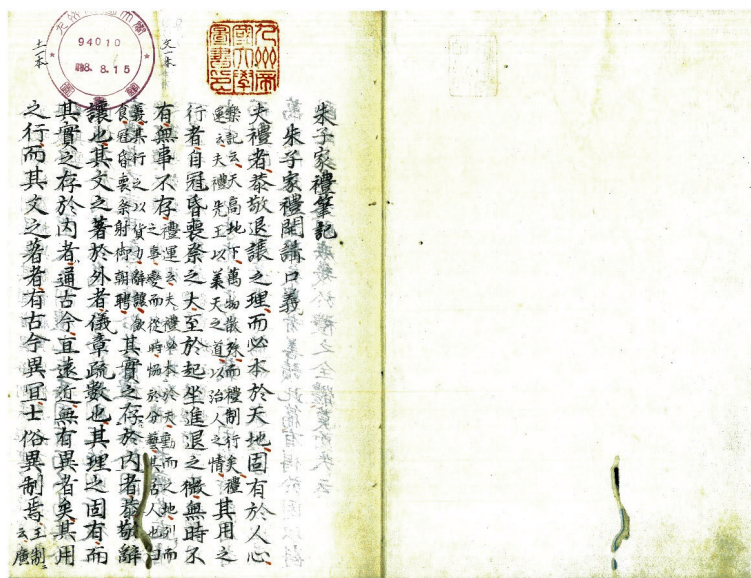 九州帝國大學圖書印
94010
昭8.8.15
朱子家禮筆記
朱子家禮開講口義
夫禮者恭敬退讓之理而必本於天地固有於人心
樂記云天高地下萬物散殊而禮制行矣禮
運云夫禮先王以天之道以治人之情
其用之
行者自冠昏喪祭之大至於起坐進退之微無時不
有無事不存
禮運云夫禮必本於天動而之地列而
之事變而從時協於分藝其居人也曰
義其行之以貨力辭讓飲
食冠昏喪祭射御朝聘
其實之存於內者恭敬辭
讓也其文之著於外者儀章疏數也其理之固有而
其實之存於內者通古今亙遠近無有異者矣其用
之行而其文之著者有古今異冝土俗異制焉
王制
云廣